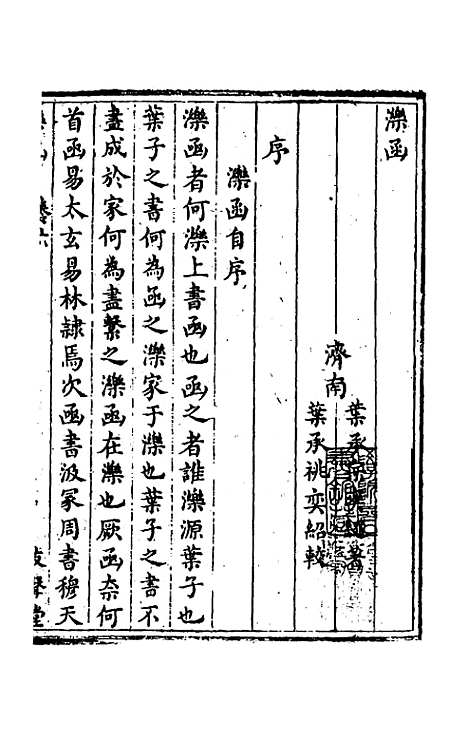 濼函
濟南
葉承
葉承祧奕紹較
序
濼函自序
濼函者何濼上書函也函之者誰濼源葉子也
葉子之書何為函之濼家于濼也葉子之書不
盡成於家何為盡繫之濼函在濼也厥函奈何
首函易太玄易林隷焉次函書汲冢周書穆天
堂